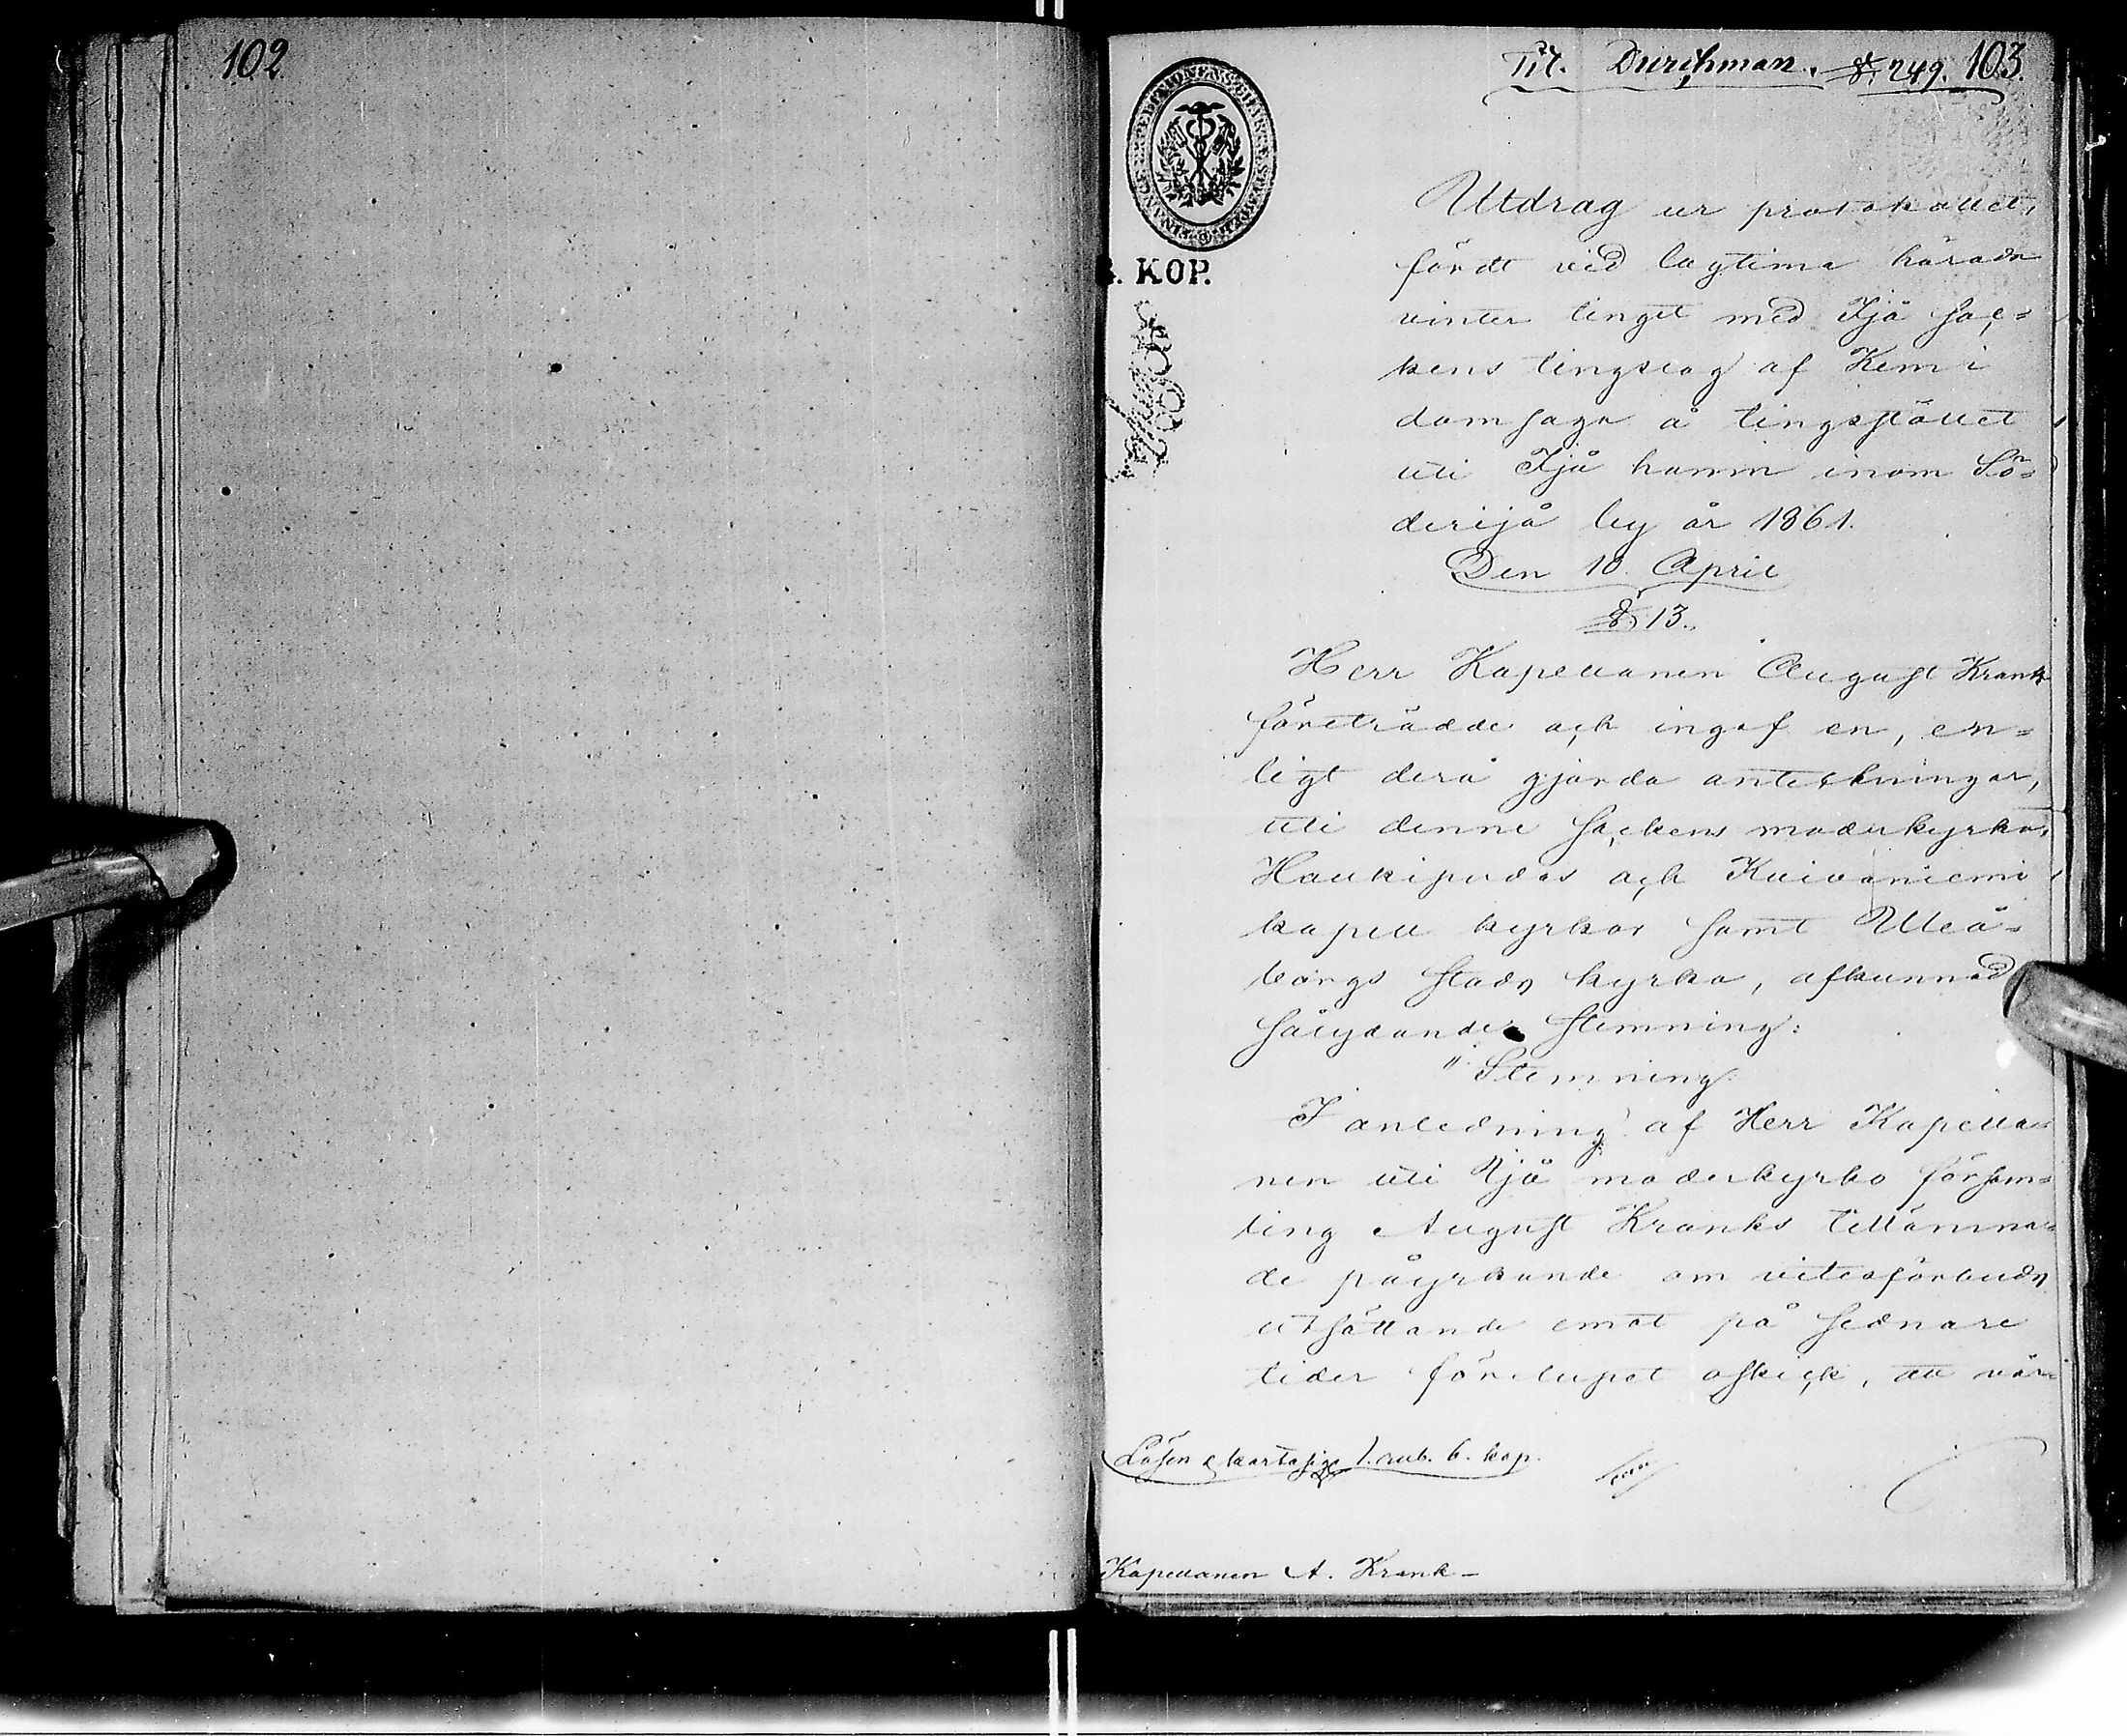 102.
Tit. Durchman. § 249. 103.
FINANCE EXPEDITIONENS CHARTÆ SIGILLATÆ
KOP.
Utdrag ur protokollet,
fördt vid lagtima härads
vinter tinget med Ijo soc-
kens tingslag af Kemi
domsaga å tingstället
uti Ijå hamn inom Sö-
derijå by år 1861.
Den 10. April
§ 13.
Herr Kapellanen August Krank
företrädde och ingaf en, en-
ligt derå gjorda anteckningar,
uti denne sockens moderkyrka,
Haukipudas och Kuivaniemi
kapell kyrkor samt Uleå-
borgs stads kyrka, afkunnad
sålydande stemning:
"Stemning.
I anledning af Herr Kapella-
nen uti Ijå moderkyrko försam-
ling August Kranks tillämna-
de påyrkande om vitesförbuds
utsättande emot på sednare
tider förelupet oskick, att vår-
Lösen & kartasige 1. rub. 6. kop.
Kapellanen A. Krank